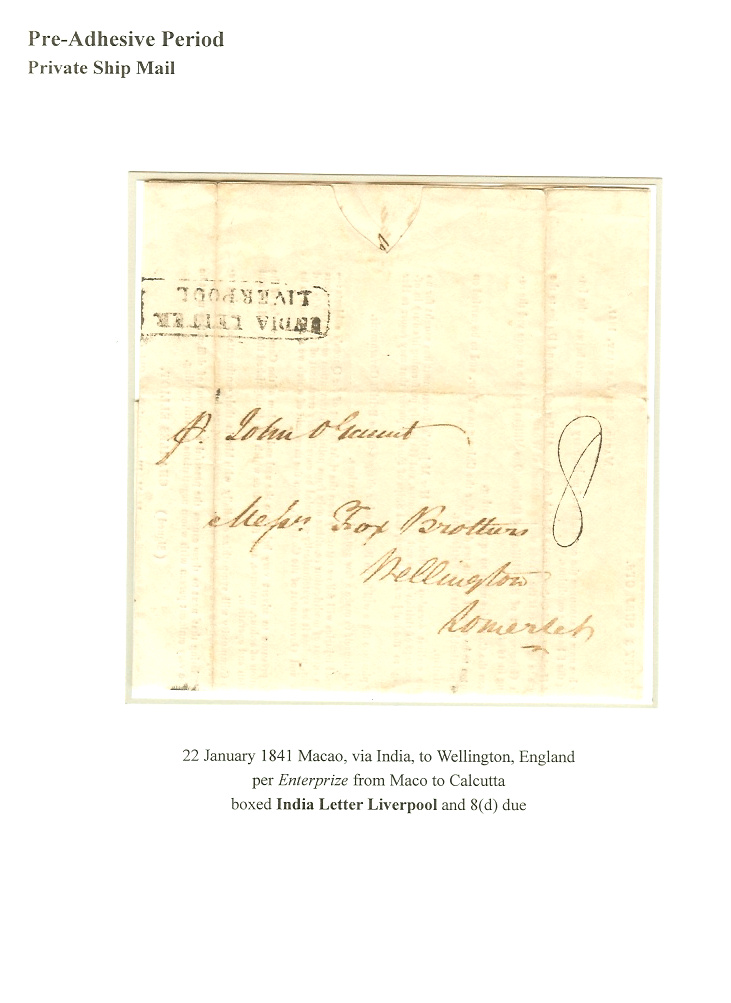 Pre-Adhesive Period
Private Ship Mail
INDIA LETTER
LIVERPOOL
p. John O'Gaunt
8
Messrs. Fox Brothers
Wellington
Somerset
22 January 1841 Macao, via India, to Wellington, England
per Enterprize from Maco to Calcutta
boxed India Letter Liverpool and 8(d) due